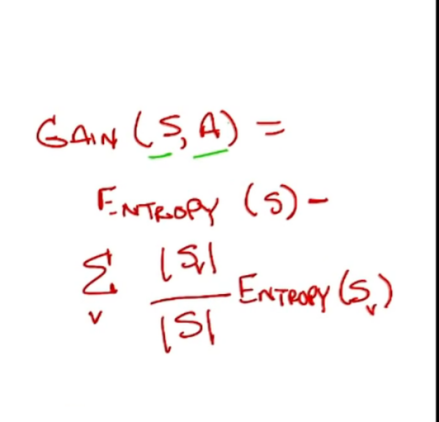 GAIN (S, A) =
ENTROPY (S) -
∑ᵥ |Sᵥ| / |S| ENTROPY (Sᵥ)